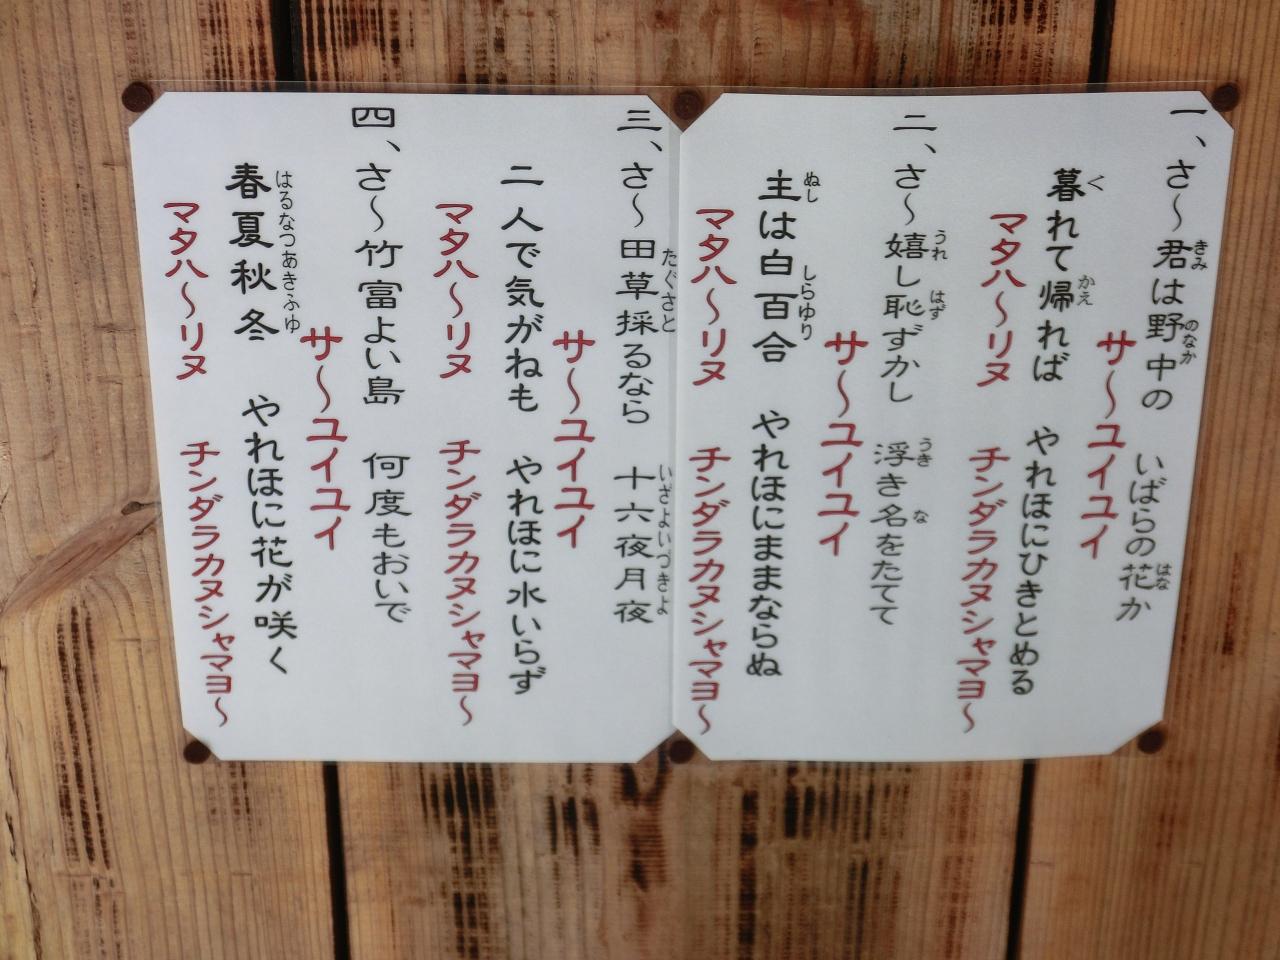 一、さ～君は野中の　いばらの花か
サ～ユイユイ
暮れて帰れば　やれほにひきとめる
マタハ～リヌ　チンダラカヌシャマヨ～
二、さ～嬉し恥ずかし　浮き名をたてて
サ～ユイユイ
主は白百合　やれほにままならぬ
マタハ～リヌ　チンダラカヌシャマヨ～
三、さ～田草採るなら　十六夜月夜
サ～ユイユイ
二人で気がねも　やれほに水いらず
マタハ～リヌ　チンダラカヌシャマヨ～
四、さ～竹富よい島　何度もおいで
サ～ユイユイ
春夏秋冬　やれほに花が咲く
マタハ～リヌ　チンダラカヌシャマヨ～